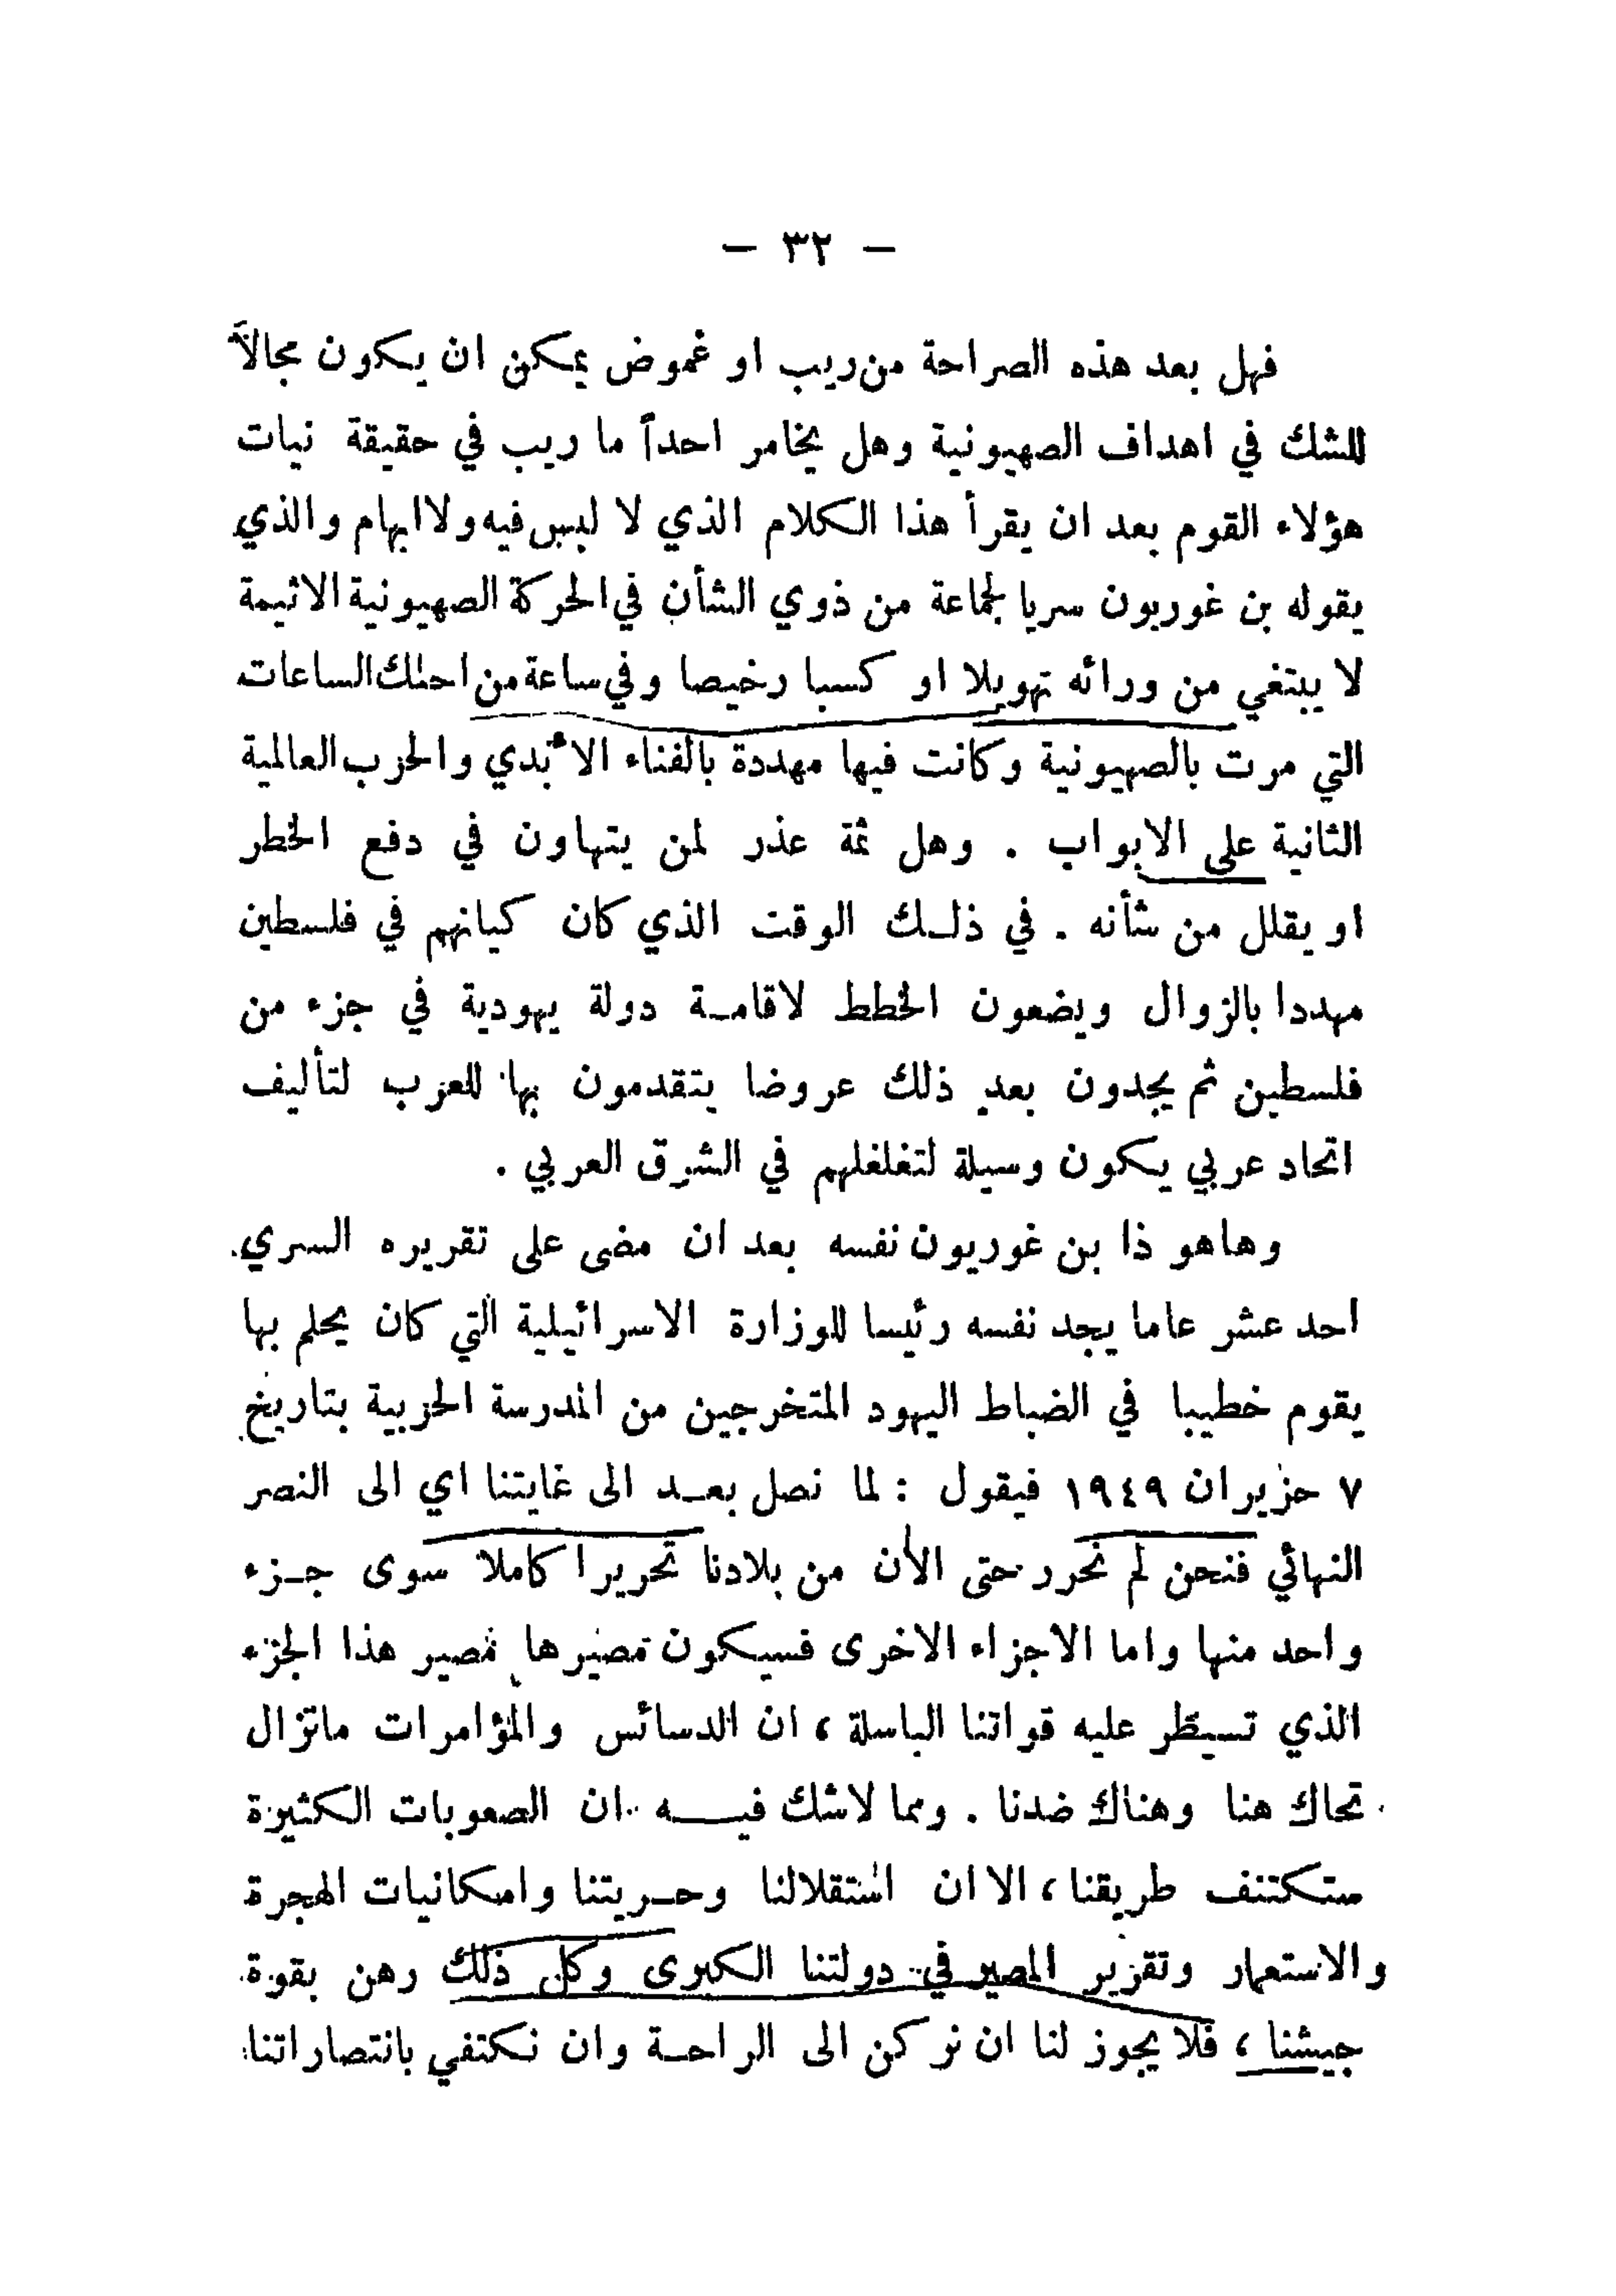 — ٣٢ —
فهل بعد هذه الصراحة من ريب او غموض يمكن ان يكون مجالاً
للشك في اهداف الصهيونية وهل يخامر احداً ما ريب في حقيقة نيات
هؤلاء القوم بعد ان يقرأ هذا الكلام الذي لا لبس فيه ولا ابهام والذي
يقوله بن غوريون سريا لجماعة من ذوي الشأن في الحركة الصهيونية الاثيمة
لا يبتغي من ورائه تهويلا او كسبا رخيصا وفي ساعة من احلك الساعات
التي مرت بالصهيونية وكانت فيها مهددة بالفناء الأبدي والحرب العالمية
الثانية على الابواب . وهل ثمة عذر لمن يتهاون في دفع الخطر
او يقلل من شأنه . في ذلك الوقت الذي كان كيانهم في فلسطين
مهددا بالزوال ويضعون الخطط لاقامة دولة يهودية في جزء من
فلسطين ثم يجدون بعد ذلك عروضا يتقدمون بها للعرب لتأليف
اتحاد عربي يكون وسيلة لتغلغلهم في الشرق العربي .
وهاهو ذا بن غوريون نفسه بعد ان مضى على تقريره السري
احد عشر عاما يجد نفسه رئيسا للوزارة الاسرائيلية التي كان يحلم بها
يقوم خطيبا في الضباط اليهود المتخرجين من المدرسة الحربية بتاريخ
٧ حزيران ١٩٤٩ فيقول : لما نصل بعد الى غايتنا اي الى النصر
النهائي فنحن لم نحرر حتى الأن من بلادنا تحريرا كاملا سوى جزء
واحد منها واما الاجزاء الاخرى فسيكون مصيرها مصير هذا الجزء
الذي تسيطر عليه قواتنا الباسلة ، ان الدسائس والمؤامرات ماتزال
تحاك هنا وهناك ضدنا . ومما لاشك فيه ان الصعوبات الكثيرة
ستكتنف طريقنا ، الا ان استقلالنا وحريتنا وامكانيات الهجرة
والاستعمار وتقرير المصير في دولتنا الكبرى وكل ذلك رهن بقوة
جيشنا ، فلا يجوز لنا ان نركن الى الراحة وان نكتفي بانتصاراتنا